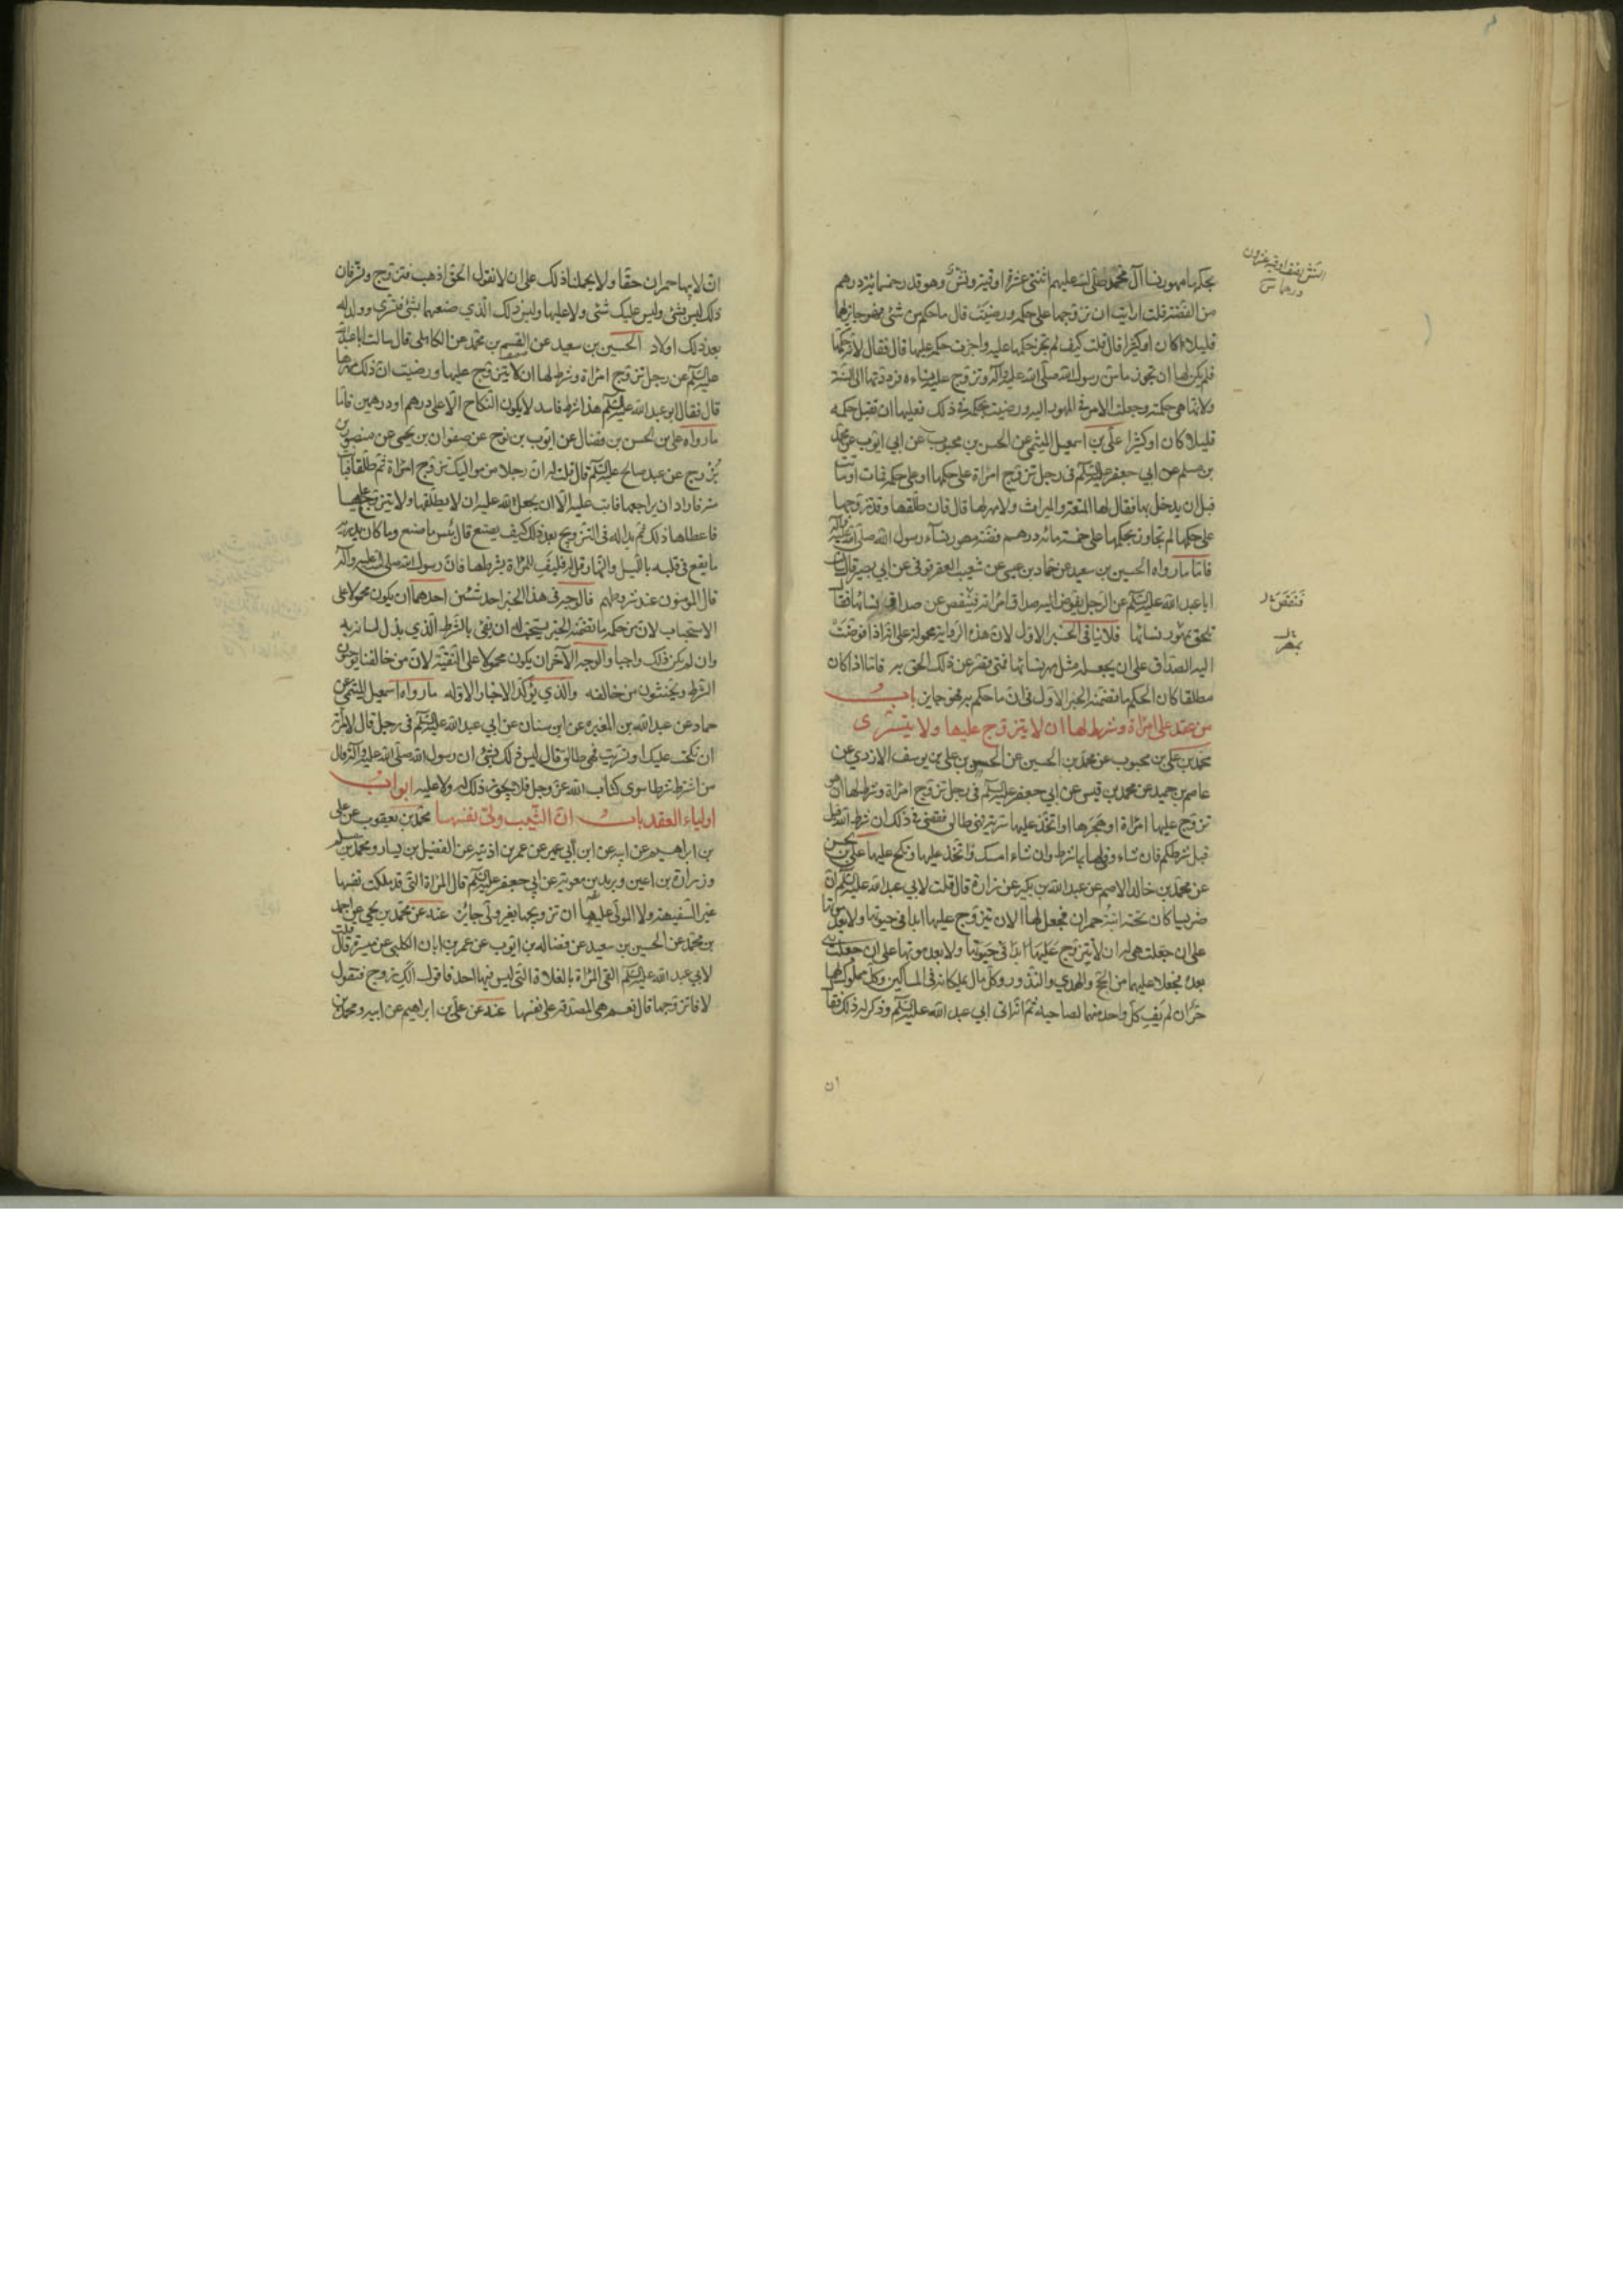 بحكمها مهور نساء آل محمد صلى الله عليهم اثنتى عشرة اوقية ونش وهو قدر خمسمائة درهم
من الفضة قلت ارايت ان تزوجها على حكمه ورضيت قال ما حكم من شئ فهو جايز لها
قليلا كان او كثيرا قال قلت كيف لم تجز حكمها عليه واجزت حكمه عليها قال فقال لانه حكمها
فلم يكن لها ان تجوز ما سن رسول الله صلى الله عليه وآله وتزوج عليه نساءه فرددتها الى السنة
ولانها هى حكمته وجعلت الامر فى المهر اليه ورضيت بحكمه فى ذلك فعليها ان تقبل حكمه
قليلا كان او كثيرا على بن اسمعيل الميثمى عن الحسن بن محبوب عن ابى ايوب عن محمد
بن مسلم عن ابي جعفر عليه السلم فى رجل تزوج امراة على حكمها او على حكمه فمات او ماتت
قبل ان يدخل بها فقال لها المتعة والميراث ولا مهر لها قال فان طلقها وقد تزوجها
على حكمها لم تجاوز بحكمها على خمسمائة درهم فضة مهور نساء رسول الله صلى الله عليه وآله
فاما ما رواه الحسين بن سعيد عن حماد بن عيسى عن شعيب العقرقوفى عن ابي بصير قال سالت
ابا عبد الله عليه السلم عن الرجل يفوض اليه صداق امراته فينقص عن صداق نسائها فقال
تلحق بمهور نسائها فلا ينافى الخبر الاول لان هذه الرواية محمولة على انه اذا فوضت
اليه الصداق على ان يجعله مثل مهر نسائها فمتى قصر عن ذلك الحق به فاما اذا كان
مطلقا كان الحكم ما تضمنه الخبر الاول فى ان ما حكم به فهو جايز باب
من عقد على امراة وشرط لها ان لا يتزوج عليها ولا يتسرى
محمد بن على بن محبوب عن محمد بن الحسين عن الحسن بن على بن يوسف الازدي عن
عاصم بن حميد عن محمد بن قيس عن ابي جعفر عليه السلم فى رجل تزوج امراة وشرط لها ان هو
تزوج عليها امراة او هجرها او اتخذ عليها سرية فهى طالق فقضى فى ذلك ان شرط الله قبل
قبل شرطكم فان شاء وفى لها بالشرط وان شاء امسك واتخذ عليها ونكح عليها على بن الحسن
عن محمد بن خالد الاصم عن عبد الله بن بكير عن زرارة قال قلت لابي عبد الله عليه السلم ان
ضريسا كان تحته ابنة حمران فجعل لها الا ان يتزوج عليها ابدا فى حيوتها ولا بعد موتها
على ان جعلت هى له ان لا يتزوج عليها ابدا فى حيوتها ولا بعد موتها على ان جعلت
بعده فجعلا عليهما من الحج والهدي والنذور وكل مال يملكانه فى المساكين وكل مملوك لهما
حر ان لم يف كل واحد منهما لصاحبه ثم انه اتى ابي عبد الله عليه السلم وذكر له ذلك فقال
ان
فتنقص
ان لابيها حمران حقا ولا يحملنا ذلك على ان لا نقول الحق اذهب فتزوج وتسر فان
ذلك ليس بشئ وليس عليك شئ ولا عليها وليس ذلك الذي صنعهما بشئ فتسرى وولد له
بعد ذلك اولاد الحسين بن سعيد عن القسم بن محمد عن الكاهلى قال سالت ابا عبد الله
عليه السلم عن رجل تزوج امراة وشرط لها ان لا يتزوج عليها ورضيت ان ذلك مهرها
قال فقال ابو عبد الله عليه السلم هذا شرط فاسد لا يكون النكاح الا على درهم او درهمين فاما
ما رواه على بن الحسن بن فضال عن ايوب بن نوح عن صفوان بن يحيى عن منصور بن
بزرج عن عبد صالح عليه السلم قال قلت له ان رجلا من مواليك تزوج امراة ثم طلقها فبانت
منه فاراد ان يراجعها فابت عليه الا ان يجعل لله عليه ان لا يطلقها ولا يتزوج عليها
فاعطاها ذلك ثم بدا له فى التزويج بعد ذلك كيف يصنع قال بئس ما صنع وما كان يدريه
ما يقع فى قلبه بالليل والنهار قل له فليف للمراة بشرطها فان رسول الله صلى الله عليه وآله
قال المؤمنون عند شروطهم فالوجه فى هذا الخبر احد شيئين احدهما ان يكون محمولا على
الاستحباب لان من حكمه ما تضمنه الخبر يستحب له ان يفى بالشرط الذي بذل لسانه به
وان لم يكن ذلك واجبا والوجه الآخر ان يكون محمولا على التقية لان من خالفنا يوجبون
الشرط ويحنثون من خالفه والذي يؤكد الاخبار الاوله ما رواه اسمعيل الميثمى عن
حماد عن عبد الله بن المغيرة عن ابن سنان عن ابي عبد الله عليه السلم فى رجل قال لامراته
ان نكحت عليك او تسريت فهى طالق قال ليس ذلك بشئ ان رسول الله صلى الله عليه وآله قال
من اشترط شرطا سوى كتاب الله عز وجل فلا يجوز ذلك له ولا عليه ابواب
اولياء العقد باب ان الثيب ولى نفسها محمد بن يعقوب عن على
بن ابراهيم عن ابيه عن ابن ابي عمير عن عمر بن اذينه عن الفضيل بن يسار ومحمد بن مسلم
وزرارة بن اعين وبريد بن معوية عن ابي جعفر عليه السلم قال المراة التى قد ملكت نفسها
غير السفيهة ولا المولى عليها ان تزويجها بغير ولى جائز عنه عن محمد بن يحيى عن احمد
بن محمد عن الحسين بن سعيد عن فضاله بن ايوب عن عمر بن ابان الكلبى عن ميسرة قال قلت
لابي عبد الله عليه السلم القى المراة بالفلاة التى ليس فيها احد فاقول الك زوج فتقول
لا فاتزوجها قال نعم هى المصدقه على نفسها عنه عن على بن ابراهيم عن ابيه ومحمد بن